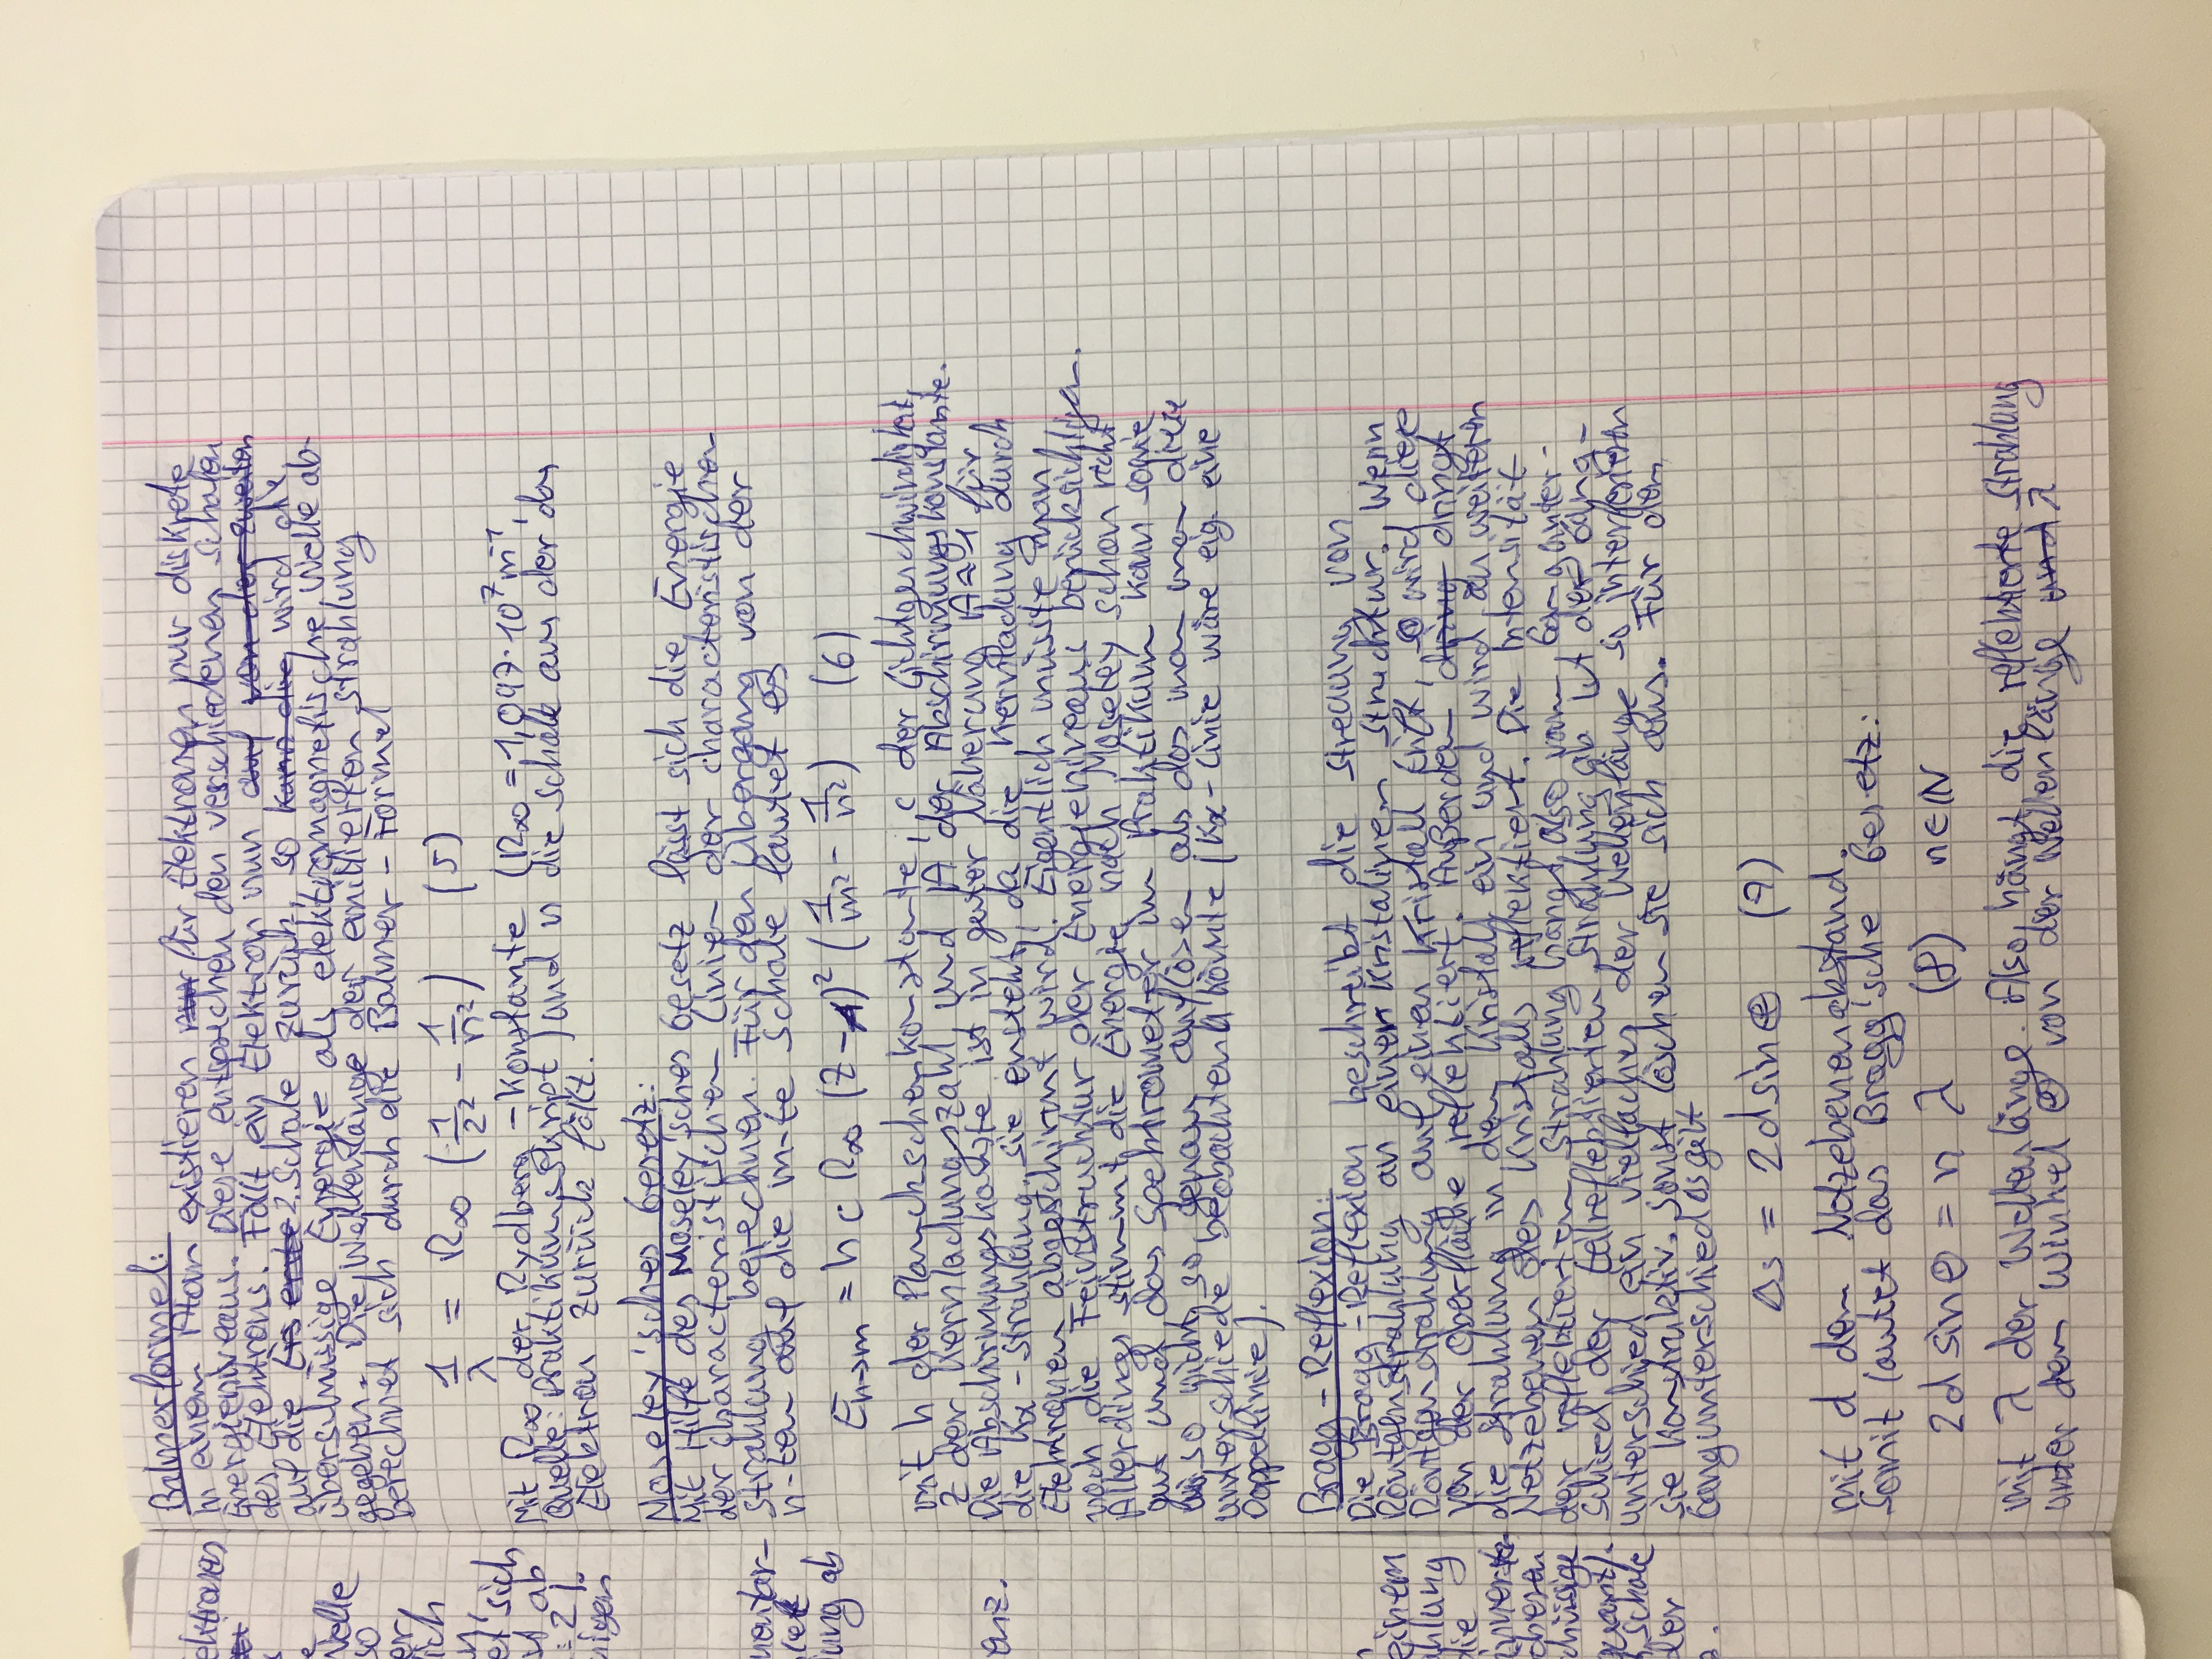 elektronen
s
e
Welle
so
er
ich
n,
et sich
ab
= 2).
nigen
mentar-
ung ab
anz.
n
einem
ahlung
die
innerste
höheren
chüssige
quant).
Schale
der
Balmerformel:
In einem Atom existieren nur für Elektronen nur diskrete
Energieniveaus. Diese entsprechen den verschiedenen Schalen
des Elektrons. Fällt ein Elektron nun auf von der zweiten
auf die Ers erste 2. Schale zurück, so kann die wird die
überschüssige Energie als elektromagnetische Welle ab-
gegeben. Die Wellenlänge der emittierten Strahlung
berechnet sich durch die Balmer-Formel
1/λ = R∞ (1/2² - 1/n²) (5)
Mit R∞ der Rydberg-Konstante (R∞ = 1,097·10⁷ m⁻¹,
Quelle: Praktikumsskript) und n die Schale aus der das
Elektron zurück fällt.
Moseley'sches Gesetz:
Mit Hilfe des Moseley'sches Gesetz lässt sich die Energie
der characteristischen Linien der characteristischen
Strahlung berechnen. Für den Übergang von der
n-ten auf die m-te Schale lautet es
En→m = h c R∞ (Z-A)² (1/m² - 1/n²) (6)
mit h der Planckschen Konstante, c der Lichtgeschwindigkeit,
Z der Kernladungszahl und A der Abschirmungskonstante.
Die Abschirmungskonste ist in guter Näherung A≈1 für
die Kα-Strahlung. Sie ensteht, da die Kernladung durch
Elektronen abgeschirmt wird. Eigentlich müsste man
noch die Feinstrucktur der Energieniveaus berücksichtigen.
Allerdings stimmt die Energie nach Moseley schon recht
gut und das Spektrometer im Praktikum kann sowie
so nicht so genau auflösen als das man man diese
unterschiede beobachten könnte (Kα-Linie wäre eig. eine
Doppellinie).
Bragg-Reflexion:
Die Bragg-Reflexion beschreibt die Streuung von
Röntgenstrahlung an einer Kristalinen Strucktur. Wenn
Röntgenstrahlung auf einen Kristall trifft, so wird diese
von der Oberfläche reflektiert. Außerdem dring dringt
die Strahlung in den Kristall ein und wird an weiteren
Netzebenen des Kristalls reflektiert. Die Intensität
der reflektierten Strahlung hängt also vom Gangunter-
schied der teilreflektierten Strahlung ab. Ist der Gang-
unterschied ein vielfaches der Wellenlänge so interferieren
sie konstruktiv. Sonst löschen sie sich aus. Für den
Gangunterschied Δs gilt
Δs = 2d sin Θ (7)
mit d dem Netzebenenabstand.
Somit lautet das Bragg'sche Gesetz:
2d sin Θ = n λ (8) n∈ℕ
mit λ der Wellenlänge. Also hängt die reflektierte Strahlung
unter dem Winkel Θ von der Wellenlänge und λ